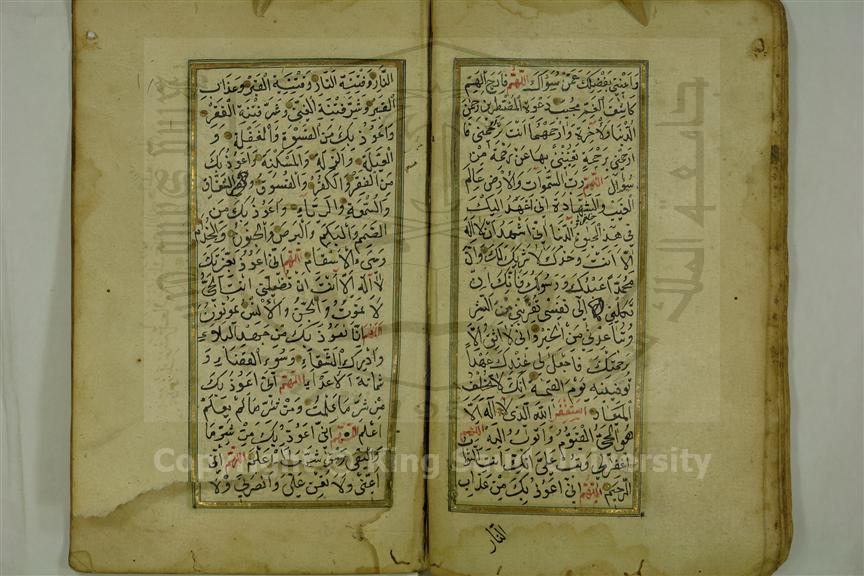 واغنني بفضلك عمن سواك اللهم فارج الهم
كاشف الغم مجيب دعوة المضطرين رحمن
الدنيا والآخرة ورحيمهما انت ترحمني فا
رحمني رحمة تغنيني بها عن رحمة من
سواك اللهم رب السموات والارض عالم
الغيب والشهادة اني اعهد اليك
في هذه الحيوة الدنيا اني اشهد ان لا اله
الا انت وحدك لا شريك لك وان
محمدا عبدك ورسولك فانك ان
تكلني الى نفسي تقربني من الشر
وتباعدني من الخير واني لا اثق الا
برحمتك فاجعل لي عندك عهدا
توفينيه يوم القيمة انك لا تخلف
الميعاد استغفر الله الذي لا اله الا
هو الحي القيوم واتوب اليه اللهم
اغفر لي وتب علي انك انت التواب
الرحيم اللهم اني اعوذ بك من عذاب
النار
النار وفتنة النار وفتنة القبر وعذاب
القبر وشر فتنة الغنى وشر فتنة الفقر
واعوذ بك من القسوة والغفلة و
العيلة والذلة والمسكنة واعوذ بك
من الفقر والكفر والفسوق والشقاق
والسمعة والرياء واعوذ بك من
الصمم والبكم والبرص والجنون والجذام
وسيئ الاسقام اللهم اني اعوذ بعزتك
لا اله الا انت ان تضلني انت الحي
لا يموت والجن والانس يموتون
اللهم انا نعوذ بك من جهد البلاء
وادرك الشقاء وسوء القضاء و
شماتة الاعداء اللهم اني اعوذ بك
من شر ما علمت ومن شر ما لم
اعلم اللهم اني اعوذ بك من شر ما
اللهم اني
اعني ولا تعن علي وانصرني ولا
جامعة الملك
Copyright © King Saud University